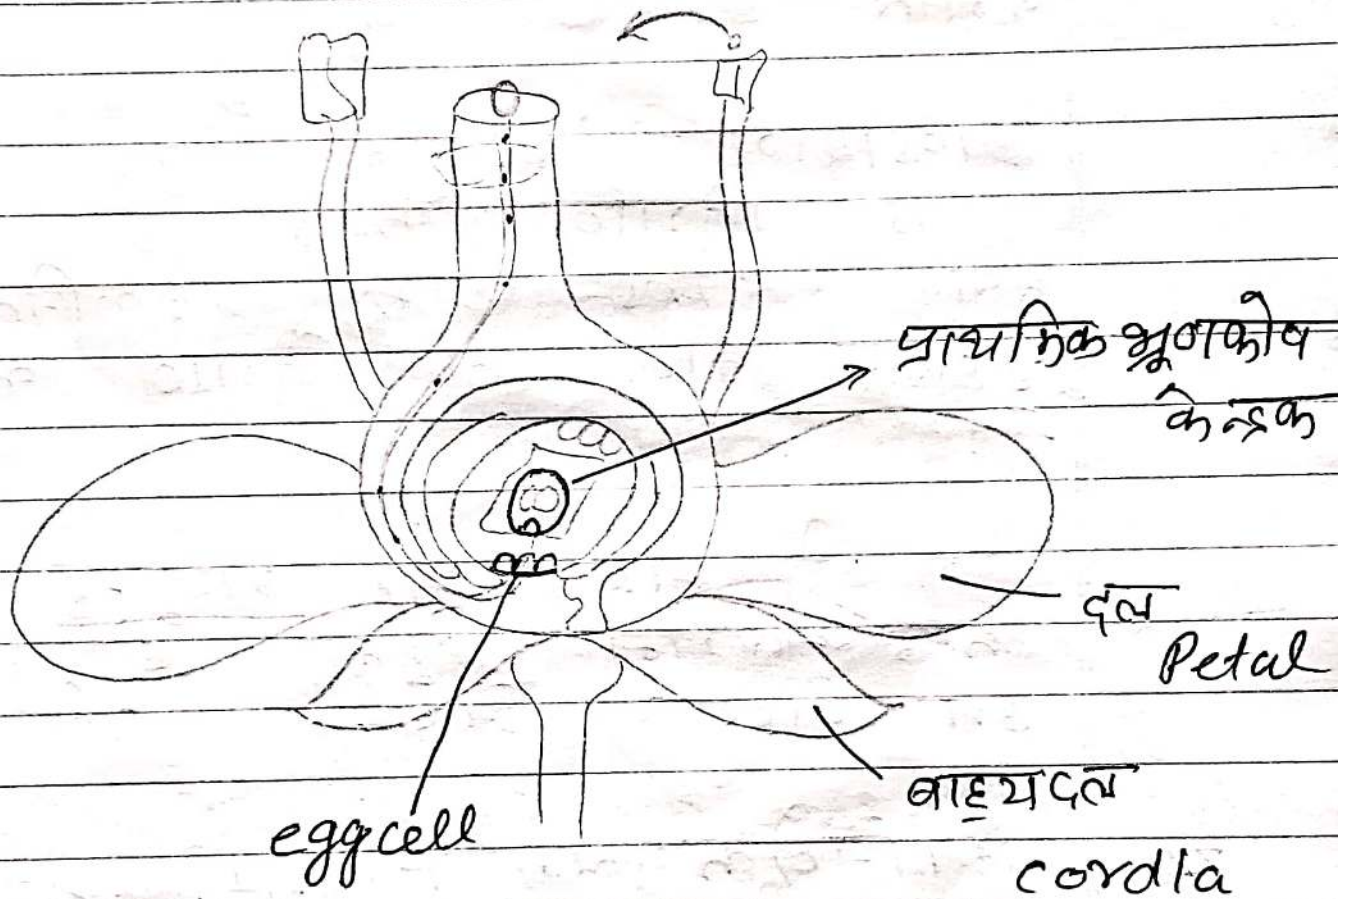 प्राथमिक भ्रूणकोष
केन्द्रक
दल
Petal
बाह्यदल
cordla
eggcell